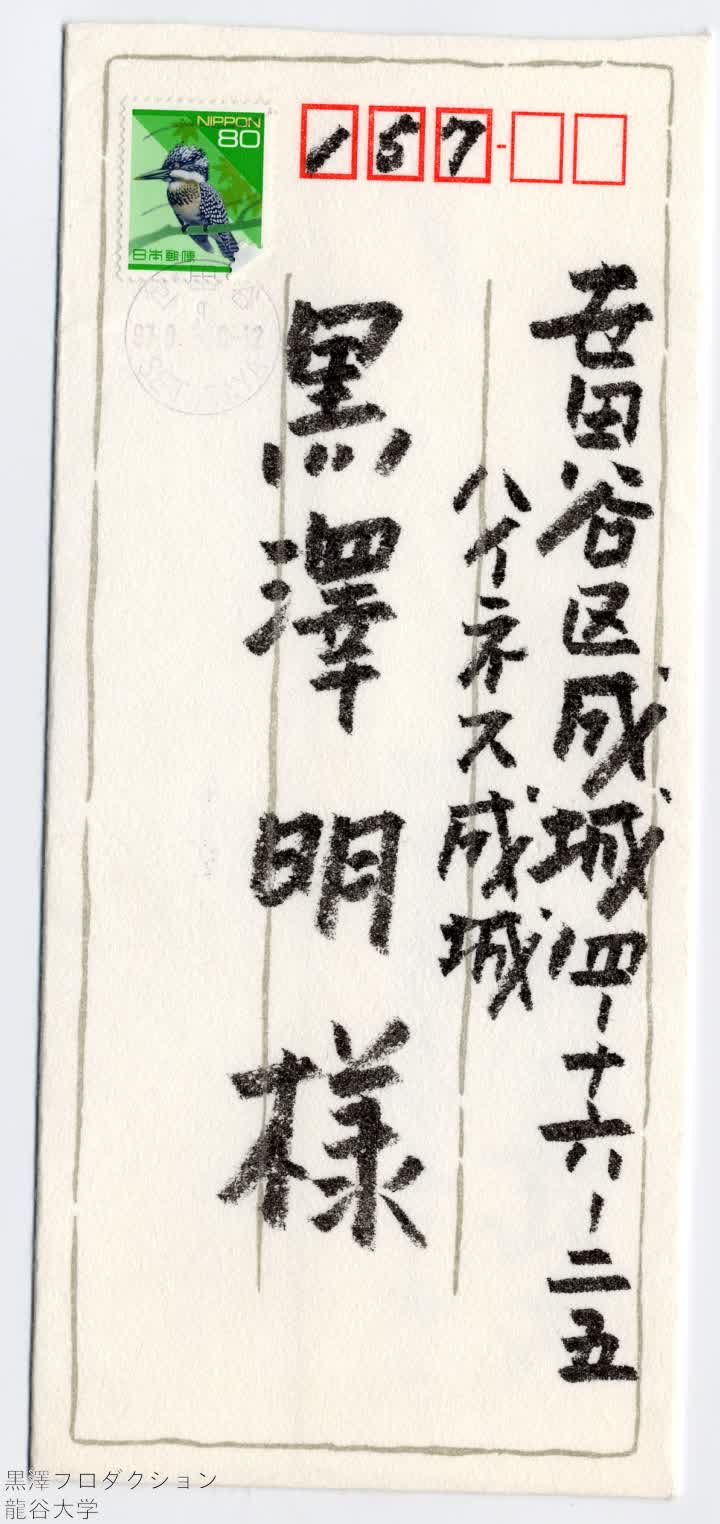 NIPPON
80
日本郵便
157
世田谷区成城四-十六-二五
ハイネス成城
黒澤明様
黒澤プロダクション
龍谷大学